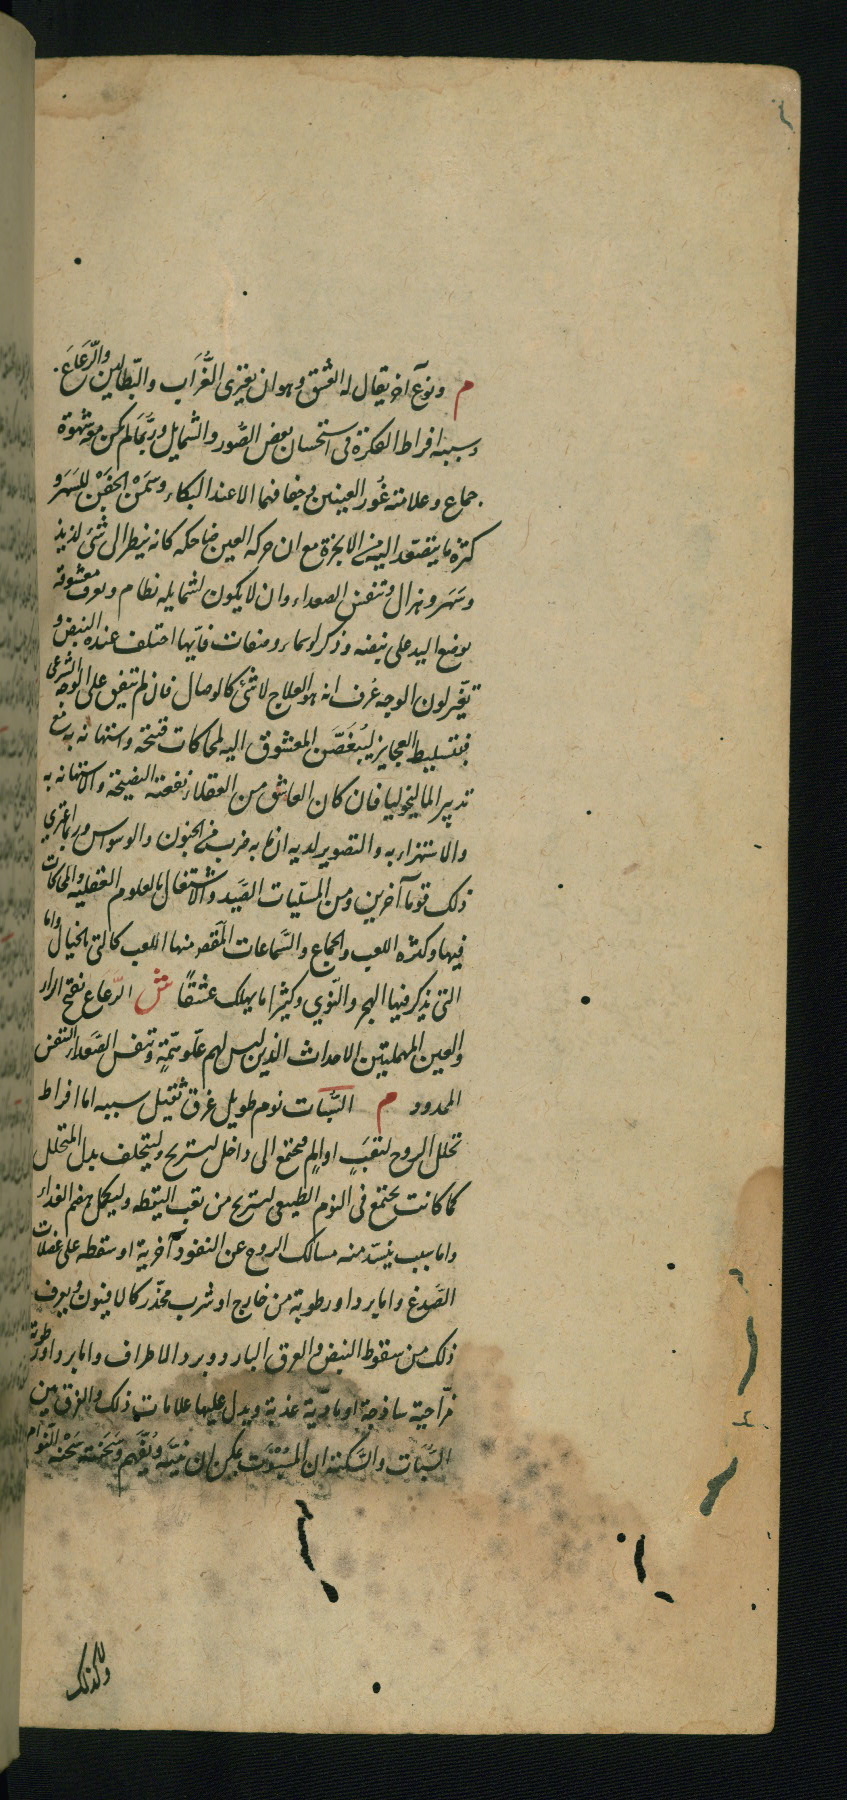 م ونوع آخر يقال له العشق وهو ان يعتري العُزَّاب والبطالين والرَّعَاعَ.
وسببه افراط الفكرة فى استحسان بعض الصُّور والشمايل وربَّما لم يكن معه شهوة
جماع وعلامته غُور العينين وجفافهما الا عند البكاء وسمَن الجفَن للسَهر و
كثرة ما يتصعد اليه من الابخرة مع ان حركة العين ضاحكه كانه ينظر الى شئ لذيذ
وسَهَر وهزال وتنفس الصعداء وان لا يكون لشمايله نظام ويعرف معشوقه
بوضع اليد على نبضه وذكر اسماء وصفات فايّها اختلف عنده النبض و
تغيّر لون الوجه عُرف انه هو العلاج لا شئ كالوصال فان لم يتفق على الوجه الشرعى
فبتسليط العجايز ليُبغِّضن المعشوق اليه لمحاكات قبيحة واستهانه به مع
تدبير الماليخوليا فان كان العاشق من العقلاء نفعته النصيحة والاستهانه به
والاستهزاء به والتصوير لديه ان ما به ضرب من الجنون والوسواس وربما اغرى
ذلك قوماً آخرين ومن المسلّيات الصَّيد والاشتغال بالعلوم العقليه والمحاكات
فيها وكثره اللعب والجماع والسَّماعات المقصر منها اللعب كالتى بالخيال واما
التى يذكر فيها الهجر والنّوي وكثيرا ما يهلك عشقاً ش الرَّعَاع بفتح الراء
والعين المهملتين الاحداث الذين ليس لهم علوّ همّةٍ وتنفس الصَّعداء التنفس
الممدود م السُّبات نوم طويل غرق ثقيل سببه اما افراط
تحلل الروح لتعَبٍ او المٍ فيجتمع الى داخل ليستريح وليتخلف بدل المتحلل
كما كانت يجتمع فى النوم الطبيعى ليستريح من تعب اليقظه وليكمل هضم الغذاء
واما سبب ينسدّ منه مسالك الروح عن النفوذ كضربة او سقطه على عضلات
الصَّدغ واما برد او رطوبة من خارج او شرب مخدّر كالافيون ويعرف
ذلك من سقوط النبض والعرق البارد وبرد الاطراف واما برد او رطوبة
مزاجية ساذجة او مادّية عذبة ويدل عليها علامات ذلك والفرق بين
السُّبات والسَّكتة ان المَسْبُوت يمكن ان ينبَّه ويُفَهَّم وسَحَنته سَحْنَة النوام
ولكذلك